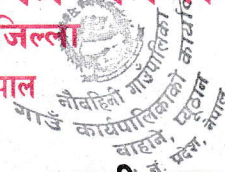 जिल्ला
पाल
नौवहिनी गाउँपालिका
गाउँ कार्यपालिकाको कार्या
बाहाने, प्यूठान
प्रदेश, नेपाल